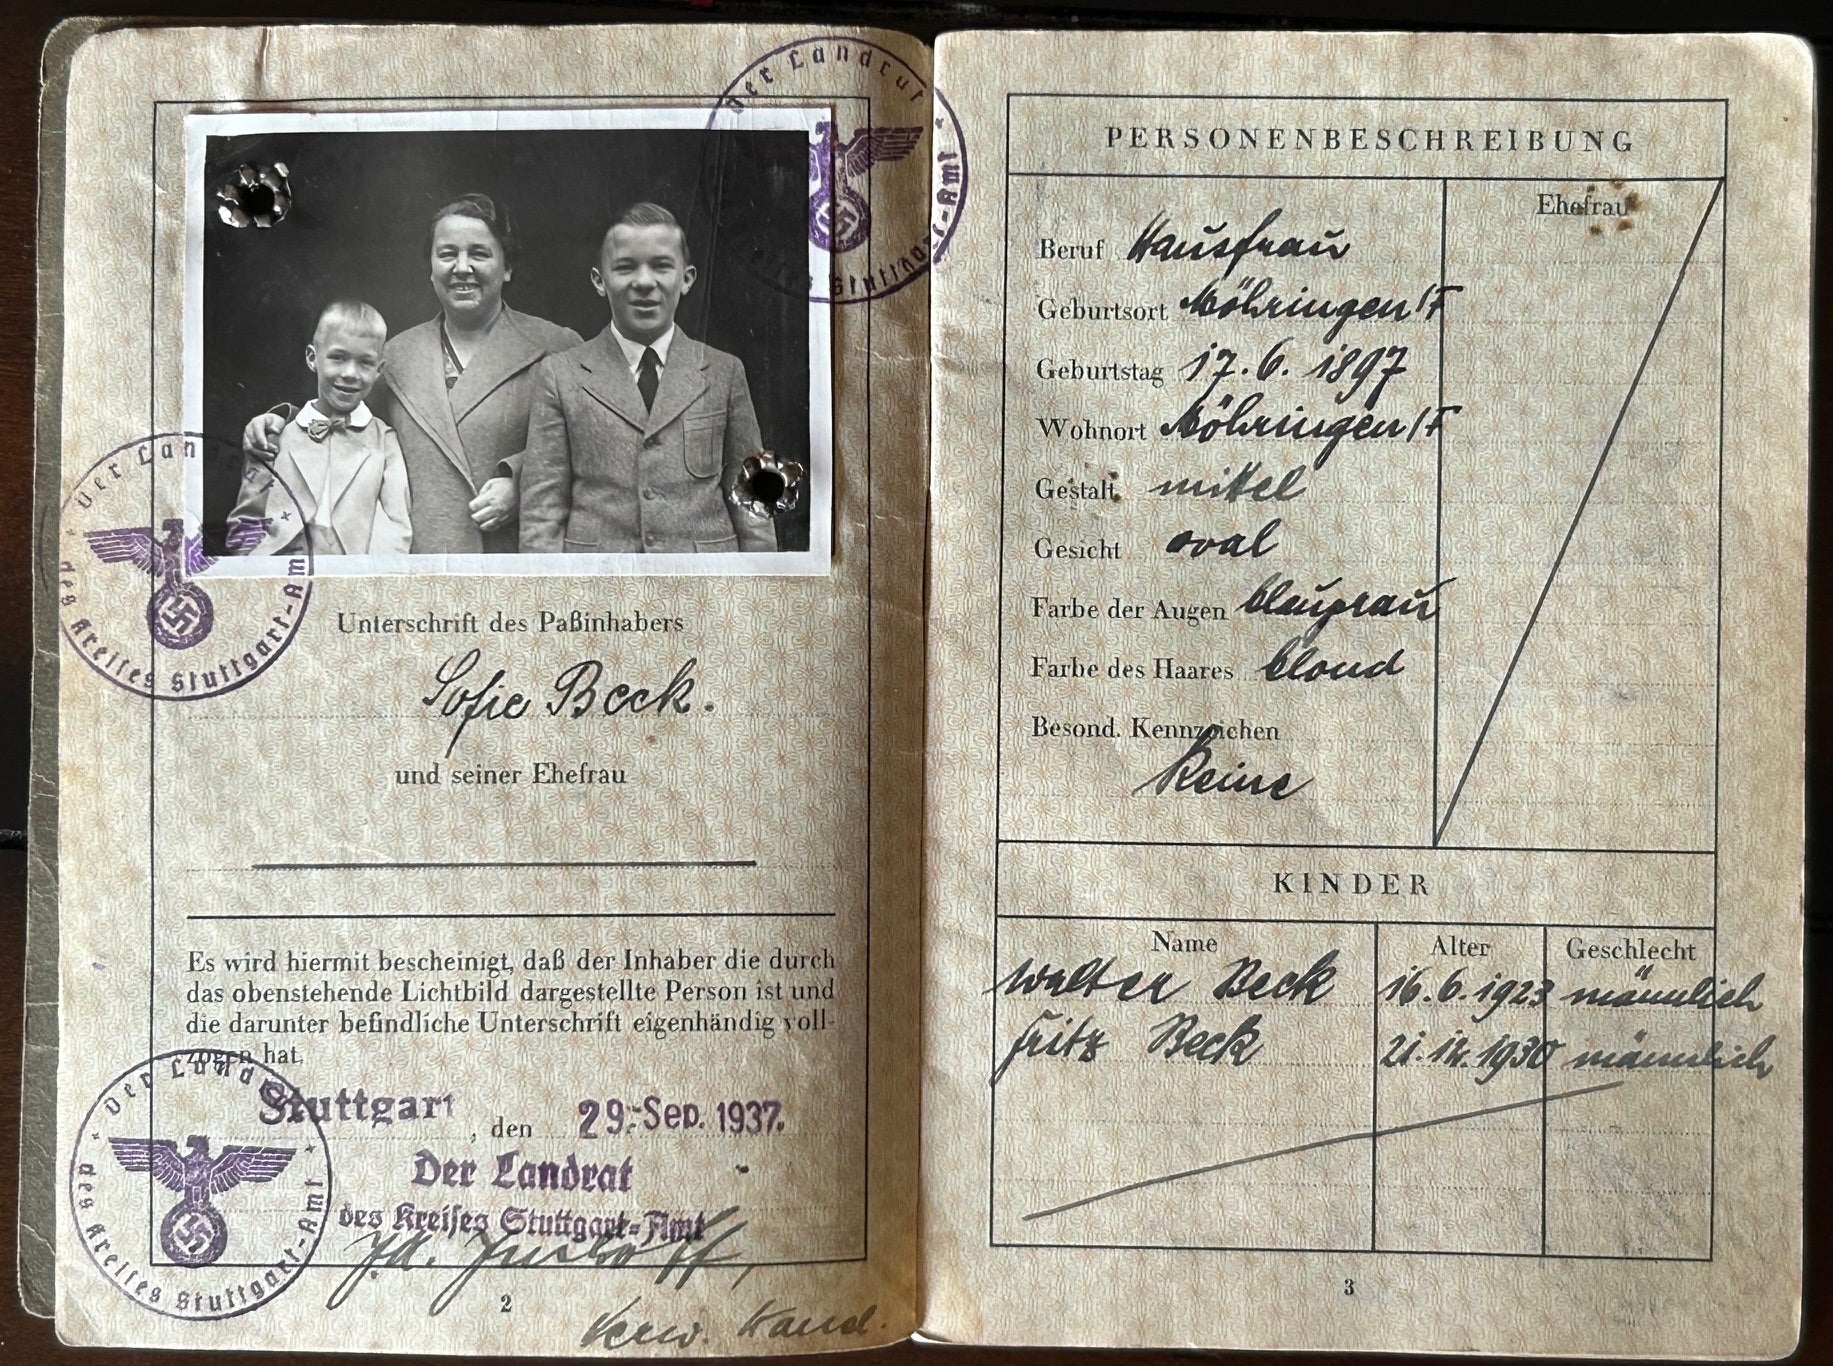 Der Landrat
des Kreises Stuttgart-Amt
Der Landrat
des Kreises Stuttgart-Amt
Unterschrift des Paßinhabers
Sofie Beck.
und seiner Ehefrau
Es wird hiermit bescheinigt, daß der Inhaber die durch
das obenstehende Lichtbild dargestellte Person ist und
die darunter befindliche Unterschrift eigenhändig voll-
zogen hat.
Stuttgart, den 29. Sep. 1937.
Der Landrat
des Kreises Stuttgart-Amt
Der Landrat
des Kreises Stuttgart-Amt
2
PERSONENBESCHREIBUNG
Ehefrau
Beruf Hausfrau
Geburtsort Möhringen/F
Geburtstag 17.6.1897
Wohnort Möhringen/F
Gestalt mittel
Gesicht oval
Farbe der Augen blaugrau
Farbe des Haares blond
Besond. Kennzeichen
Keine
KINDER
Name Alter Geschlecht
Walter Beck 16.6.1923 männlich
Fritz Beck 21.12.1930 männlich
3